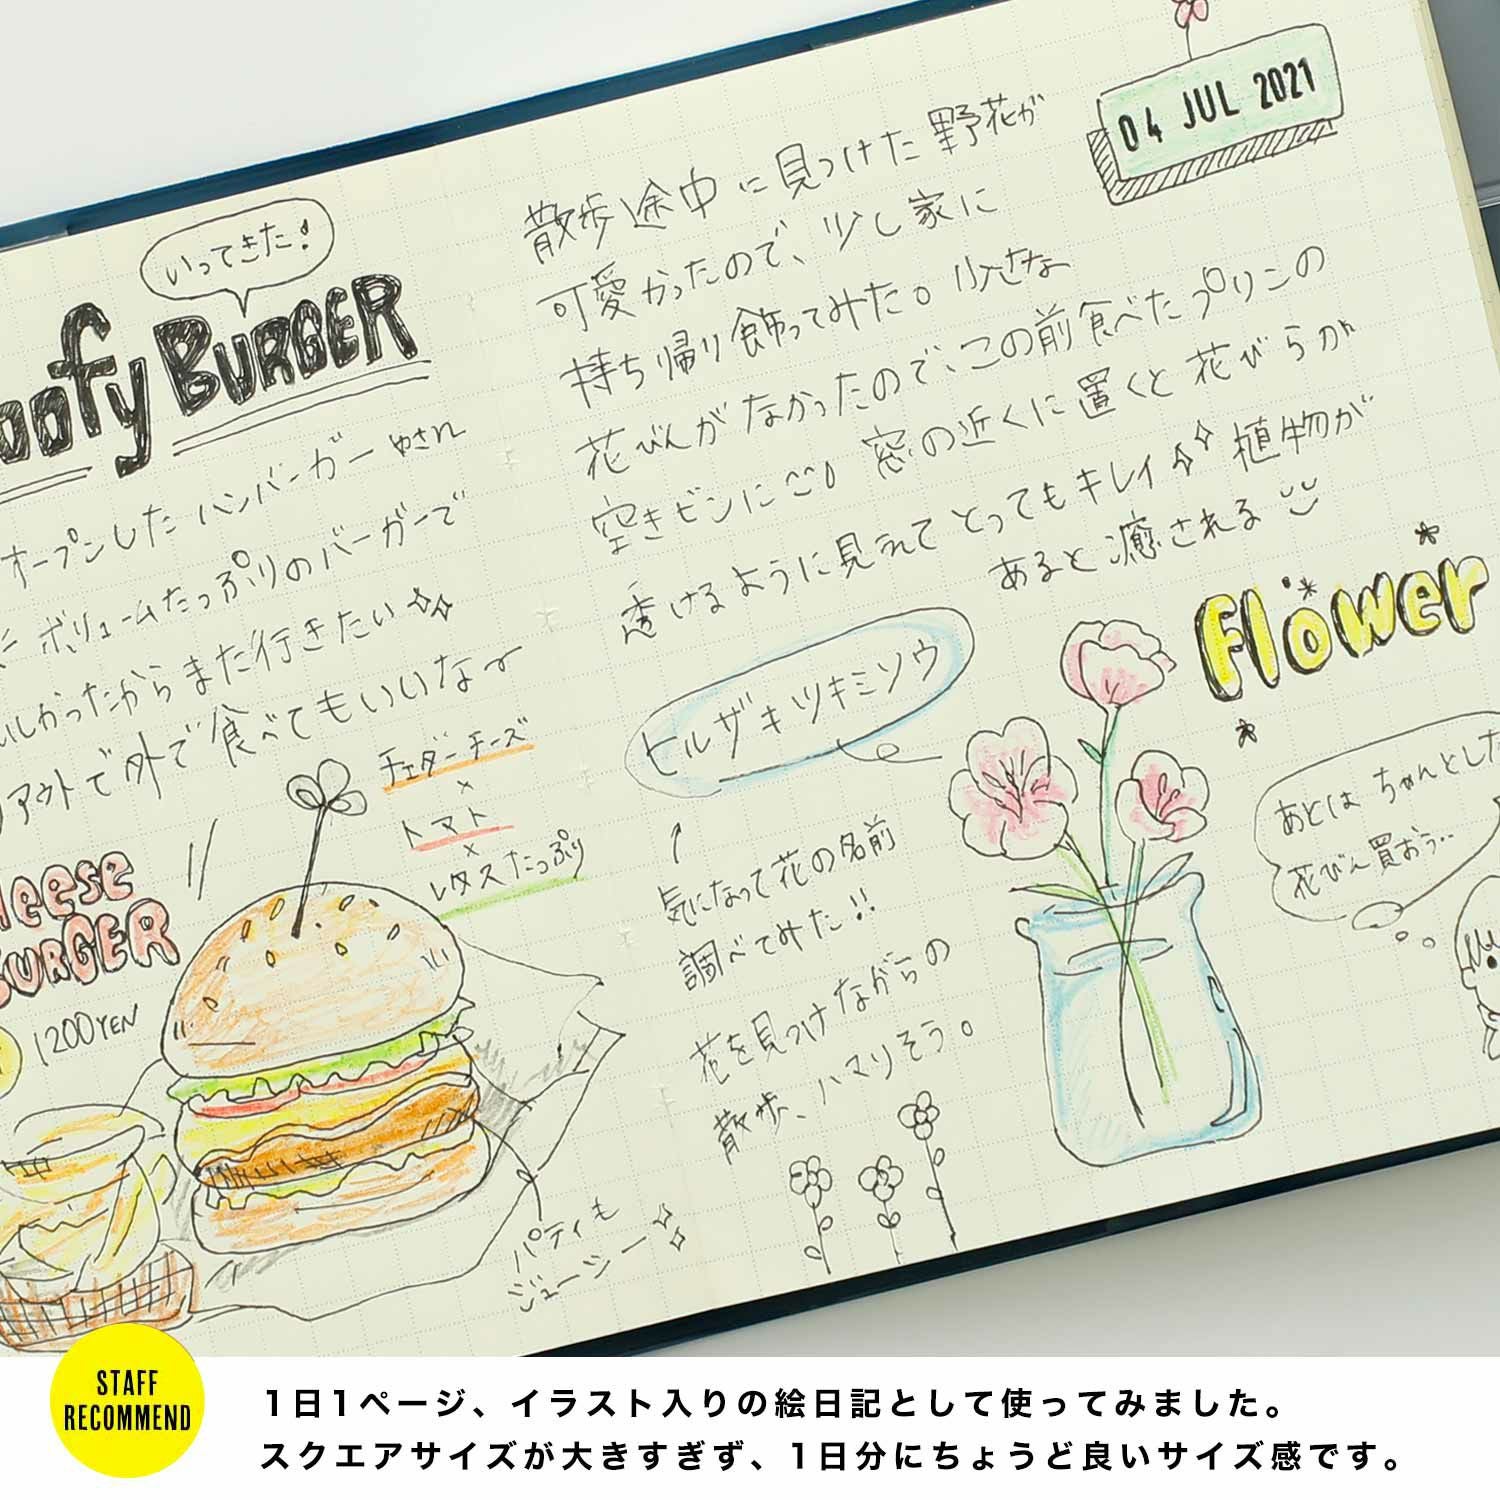 いってきた!
oofy BURGER
オープンしたハンバーガー
ボリュームたっぷりのバーガーで
いしかったからまた行きたい
アウトで外で食べてもいいなー
チェダーチーズ
×
トマト
×
レタスたっぷり
heese
BURGER
1200YEN
パティも
ジューシー
04 JUL 2021
散歩途中に見つけた野花が
可愛かったので、少し家に
持ち帰り飾ってみた。小さな
花びんがなかったので、この前食べたプリンの
空きビンに 窓の近くに置くと花びらが
透けるように見えてとってもキレイ 植物が
あると癒される
Flower
ヒルザキツキミソウ
↑
気になって花の名前
調べてみた!!
花を見つけながらの
散歩、ハマりそう。
あとはちゃんとした
花びん買おう..
STAFF
RECOMMEND
1日1ページ、イラスト入りの絵日記として使ってみました。
スクエアサイズが大きすぎず、1日分にちょうど良いサイズ感です。